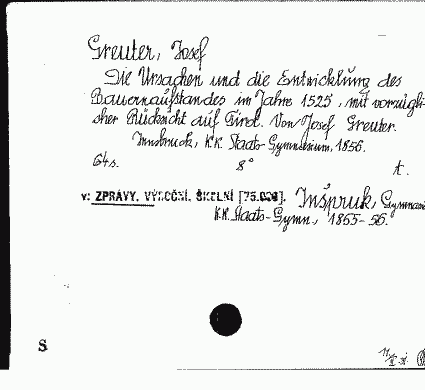 Greuter, Josef
Die Ursachen und die Entwicklung des
Bauernaufstandes im Jahre 1525, mit vorzügli-
cher Rücksicht auf Tirol. Von Josef Greuter.
Innsbruck, K.K. Staats-Gymnasium, 1856.
64s. 8° t.
v: ZPRÁVY. VÝROČNÍ. ŠKOLNÍ [75.000]. Inšpruk, Gymnasi
K.K. Staats-Gymn., 1855-56.
S